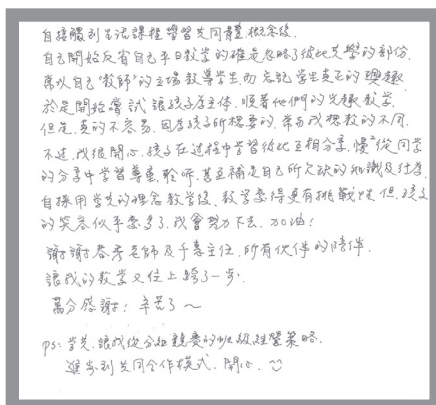 自接觸到生活課程學習共同體概念後，
自己開始反省自己平日教學的確是忽略了彼此共學的部份，
常以自己"教師"的立場教導學生而忘記學生真正的興趣
於是開始嘗試讓孩子為主体，順著他們的興趣教學，
但是真的不容易，因為孩子所想要的，常與我想教的不同，
不過，我很開心，孩子在過程中學習彼此互相分享，懂得從同學
的分享中學習尊重、聆听，甚至補足自己所欠缺的知識及付出，
自採用學共的理念教學後，教學變得更有挑戰性，但，孩子
的笑容似乎變多了，我會努力下去，加油！
謝謝春秀老師及千惠主任，所有伙伴的陪伴，
讓我的教學又往上跨了一步，
萬分感謝！辛苦了～
ps：學共，讓我從分組競賽的班級經營策略，
進步到共同合作模式，開心，